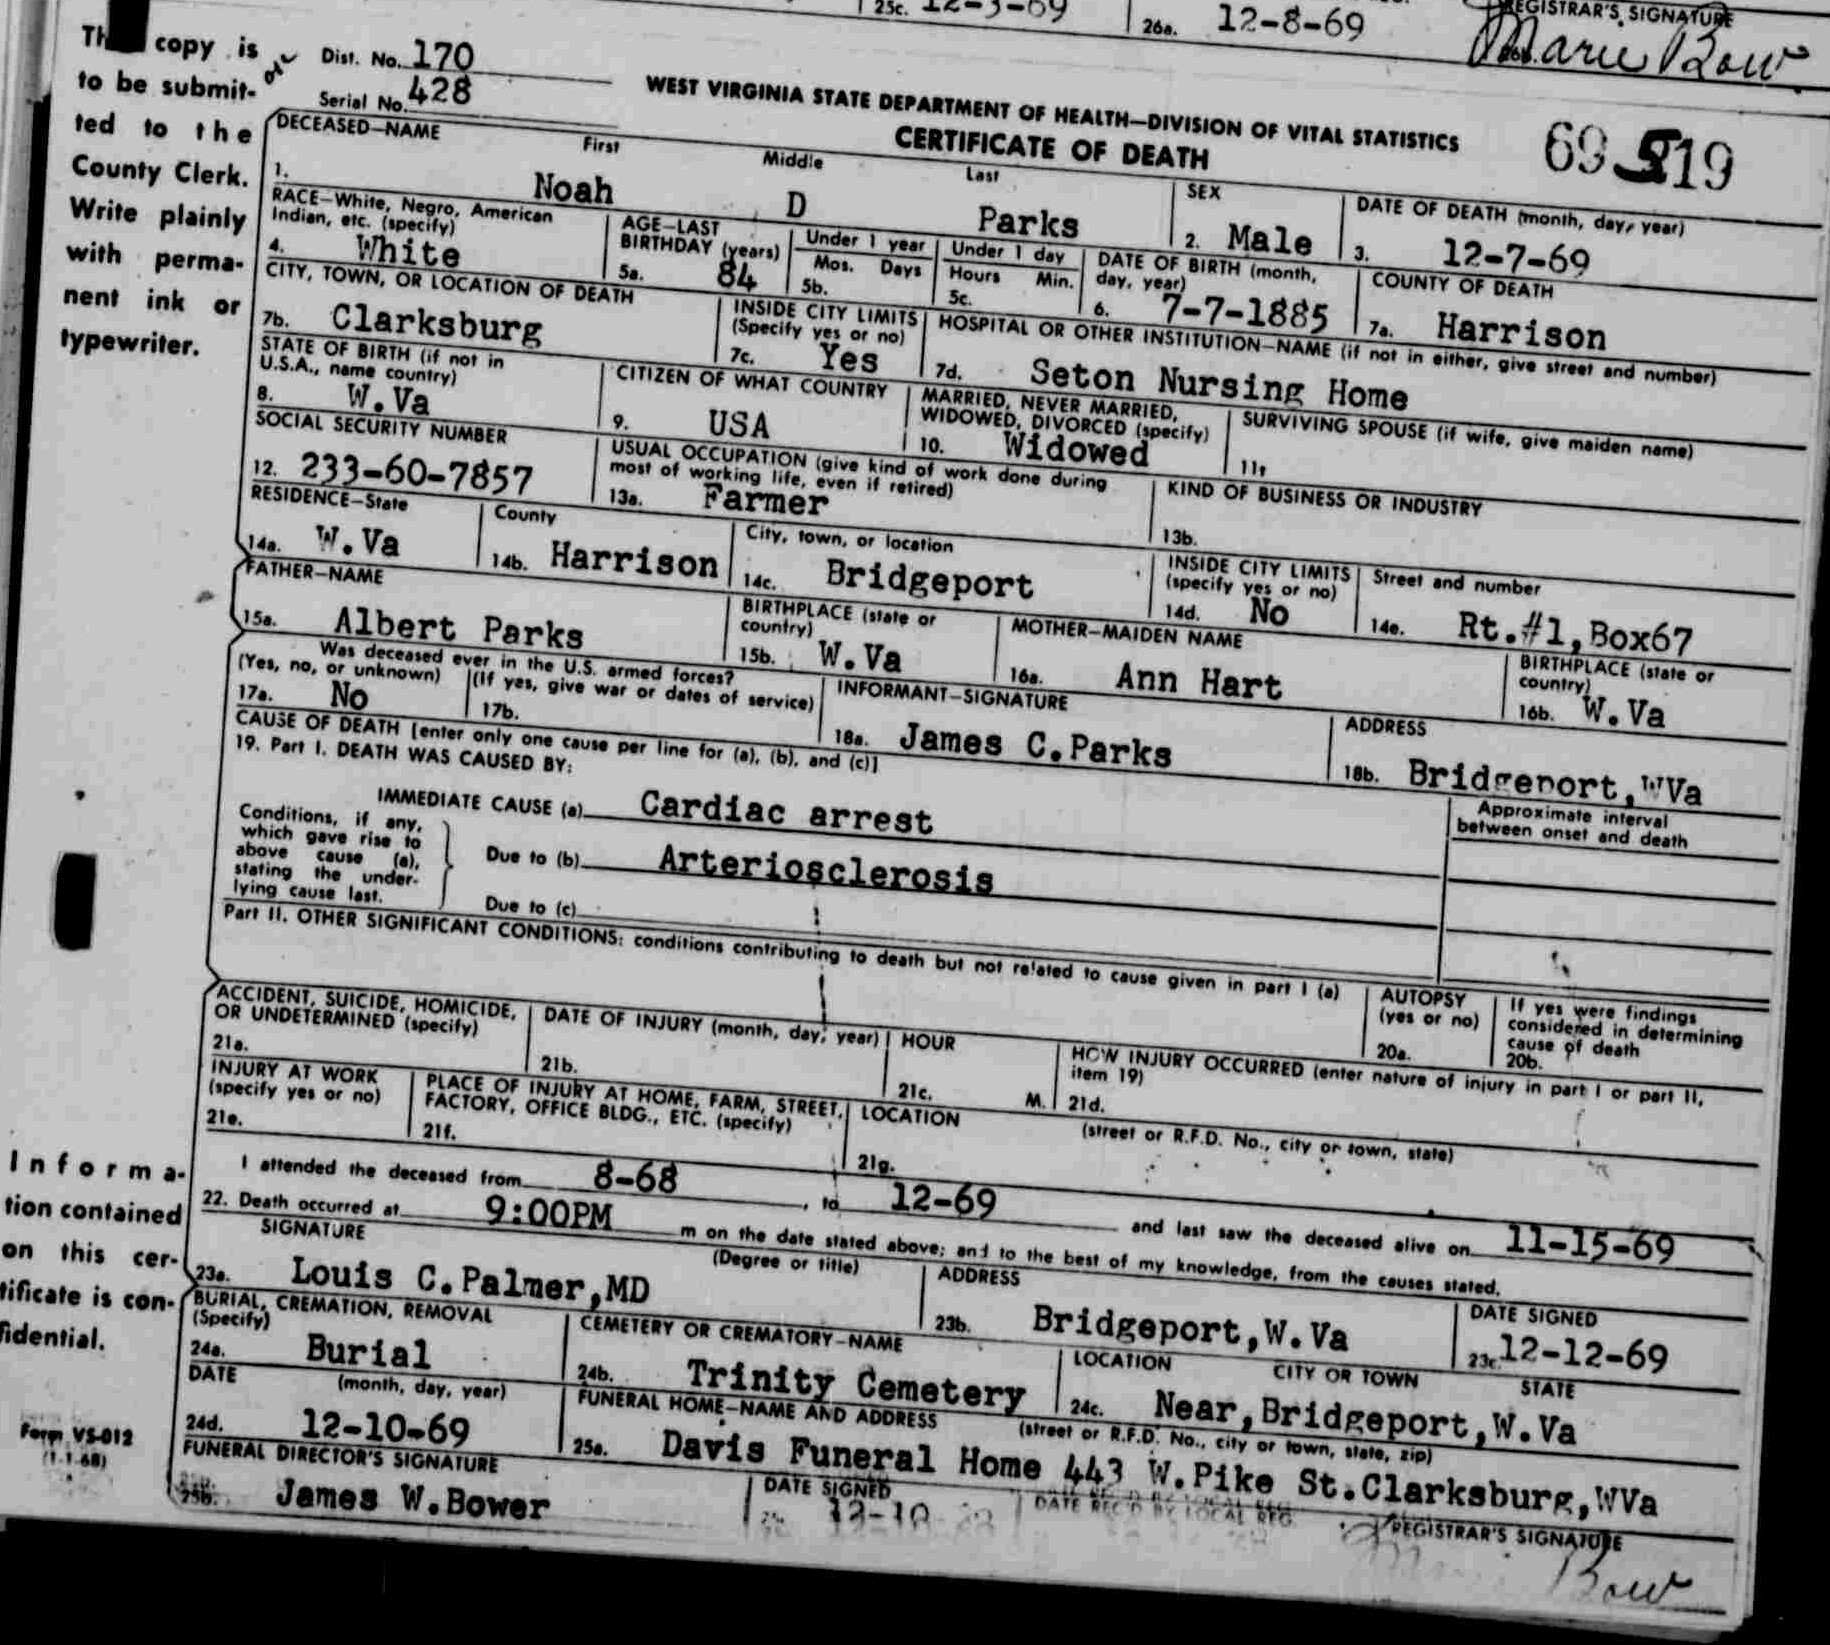 25c. 12-3-69 26a. 12-8-69 REGISTRAR'S SIGNATURE
Marie Bow
copy is
to be submit-
ted to the
County Clerk.
Write plainly
with perma-
nent ink or
typewriter.
Dist. No. 170
Serial No. 428
WEST VIRGINIA STATE DEPARTMENT OF HEALTH—DIVISION OF VITAL STATISTICS
CERTIFICATE OF DEATH
69 19
DECEASED—NAME First Middle Last
1. Noah D Parks
SEX
2. Male
DATE OF DEATH (month, day, year)
3. 12-7-69
RACE—White, Negro, American
Indian, etc. (specify)
4. White
AGE—LAST
BIRTHDAY (years)
5a. 84
Under 1 year
Mos. Days
5b.
Under 1 day
Hours Min.
5c.
DATE OF BIRTH (month,
day, year)
6. 7-7-1885
COUNTY OF DEATH
7a. Harrison
CITY, TOWN, OR LOCATION OF DEATH
7b. Clarksburg
INSIDE CITY LIMITS
(Specify yes or no)
7c. Yes
HOSPITAL OR OTHER INSTITUTION—NAME (if not in either, give street and number)
7d. Seton Nursing Home
STATE OF BIRTH (if not in
U.S.A., name country)
8. W.Va
CITIZEN OF WHAT COUNTRY
9. USA
MARRIED, NEVER MARRIED,
WIDOWED, DIVORCED (specify)
10. Widowed
SURVIVING SPOUSE (if wife, give maiden name)
11.
SOCIAL SECURITY NUMBER
12. 233-60-7857
USUAL OCCUPATION (give kind of work done during
most of working life, even if retired)
13a. Farmer
KIND OF BUSINESS OR INDUSTRY
13b.
RESIDENCE—State
14a. W.Va
County
14b. Harrison
City, town, or location
14c. Bridgeport
INSIDE CITY LIMITS
(specify yes or no)
14d. No
Street and number
14e. Rt.#1,Box67
FATHER—NAME
15a. Albert Parks
BIRTHPLACE (state or
country)
15b. W.Va
MOTHER—MAIDEN NAME
16a. Ann Hart
BIRTHPLACE (state or
country)
16b. W.Va
Was deceased ever in the U.S. armed forces?
(Yes, no, or unknown) (If yes, give war or dates of service)
17a. No 17b.
INFORMANT—SIGNATURE
18a. James C.Parks
ADDRESS
18b. Bridgeport,WVa
CAUSE OF DEATH [enter only one cause per line for (a), (b), and (c)]
19. Part I. DEATH WAS CAUSED BY:
Approximate interval
between onset and death
IMMEDIATE CAUSE (a) Cardiac arrest
Conditions, if any,
which gave rise to
above cause (a),
stating the under-
lying cause last.
Due to (b) Arteriosclerosis
Due to (c)
Part II. OTHER SIGNIFICANT CONDITIONS: conditions contributing to death but not related to cause given in part I (a)
AUTOPSY
(yes or no)
20a.
If yes were findings
considered in determining
cause of death
20b.
ACCIDENT, SUICIDE, HOMICIDE,
OR UNDETERMINED (specify)
21a.
DATE OF INJURY (month, day, year)
21b.
HOUR
21c. M.
HOW INJURY OCCURRED (enter nature of injury in part I or part II,
item 19)
21d.
INJURY AT WORK
(specify yes or no)
21e.
PLACE OF INJURY AT HOME, FARM, STREET,
FACTORY, OFFICE BLDG., ETC. (specify)
21f.
LOCATION (street or R.F.D. No., city or town, state)
21g.
Informa-
tion contained
on this cer-
tificate is con-
fidential.
I attended the deceased from 8-68, to 12-69 and last saw the deceased alive on 11-15-69
22. Death occurred at 9:00PM m on the date stated above; and to the best of my knowledge, from the causes stated.
SIGNATURE (Degree or title)
23a. Louis C.Palmer,MD
ADDRESS
23b. Bridgeport,W.Va
DATE SIGNED
23c. 12-12-69
BURIAL, CREMATION, REMOVAL
(Specify)
24a. Burial
CEMETERY OR CREMATORY—NAME
24b. Trinity Cemetery
LOCATION CITY OR TOWN STATE
24c. Near,Bridgeport,W.Va
DATE (month, day, year)
24d. 12-10-69
FUNERAL HOME—NAME AND ADDRESS (street or R.F.D. No., city or town, state, zip)
25a. Davis Funeral Home 443 W.Pike St.Clarksburg,WVa
Form VS-012
(1-1-68)
FUNERAL DIRECTOR'S SIGNATURE
25b. James W.Bower
DATE SIGNED
12-10
DATE REC'D BY LOCAL REG.
REGISTRAR'S SIGNATURE
Bow